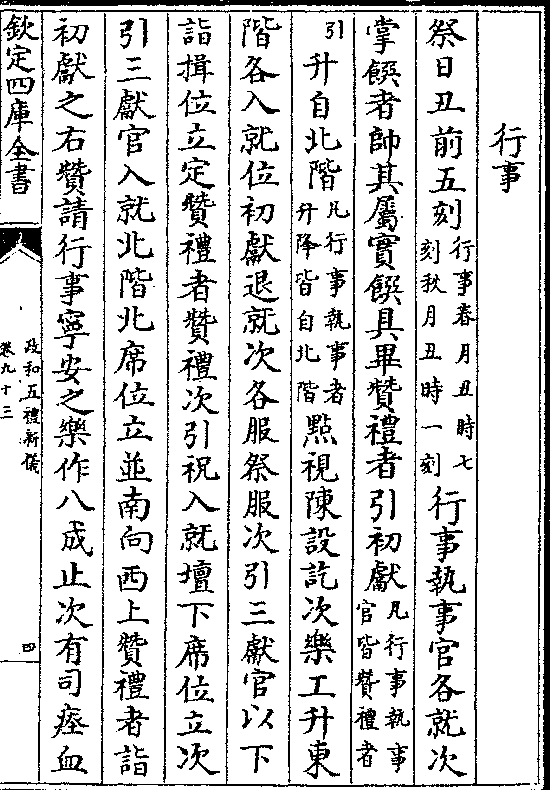 行事
祭日丑前五刻行事春月丑時七刻秋月丑時一刻行事執事官各就次
掌饌者帥其屬實饌具畢贊禮者引初獻凡行事執事官皆贊禮者
引升自北階凡行事執事者升降皆自北階點視陳設訖次樂工升東
階各入就位初獻退就次各服祭服次引三獻官以下
詣揖位立定贊禮者贊禮次引祝入就壇下席位立次
引三獻官入就北階北席位立並南向西上贊禮者詣
初獻之右贊請行事寧安之樂作八成止次有司瘞血
欽定四庫全書
政和五禮新儀
卷九十三
四